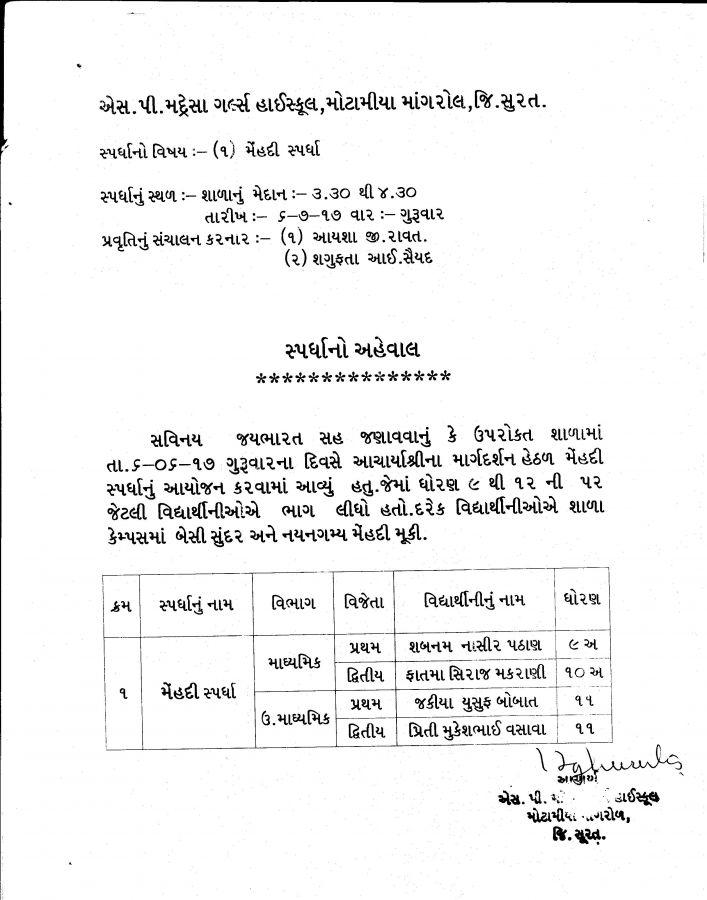 એસ.પી.મદ્રેસા ગર્લ્સ હાઈસ્કૂલ,મોટામીયા માંગરોલ,જિ.સુરત.
સ્પર્ધાનો વિષય :– (૧) મેંહદી સ્પર્ધા
સ્પર્ધાનું સ્થળ :– શાળાનું મેદાન :– ૩.૩૦ થી ૪.૩૦
તારીખ :– ૬–૭–૧૭ વાર :– ગુરૂવાર
પ્રવૃતિનું સંચાલન કરનાર :– (૧) આયશા જી.રાવત.
(૨) શગુફતા આઈ.સૈયદ
સ્પર્ધાનો અહેવાલ
***************
સવિનય જયભારત સહ જણાવવાનું કે ઉપરોકત શાળામાં
તા.૬–૦૬–૧૭ ગુરૂવારના દિવસે આચાર્યાશ્રીના માર્ગદર્શન હેઠળ મેંહદી
સ્પર્ધાનું આયોજન કરવામાં આવ્યું હતુ.જેમાં ધોરણ ૯ થી ૧૨ ની ૫૨
જેટલી વિદ્યાર્થીનીઓએ ભાગ લીધો હતો.દરેક વિદ્યાર્થીનીઓએ શાળા
કેમ્પસમાં બેસી સુંદર અને નયનગમ્ય મેંહદી મૂકી.
ક્રમ સ્પર્ધાનું નામ વિભાગ વિજેતા વિદ્યાર્થીનીનું નામ ધોરણ
૧ મેંહદી સ્પર્ધા માધ્યમિક પ્રથમ શબનમ નાસીર પઠાણ ૯ અ
દ્વિતીય ફાતમા સિરાજ મકરાણી ૧૦ અ
ઉ.માધ્યમિક પ્રથમ જકીયા યુસુફ બોબાત ૧૧
દ્વિતીય પ્રિતી મુકેશભાઈ વસાવા ૧૧
એસ. પી. હાઈસ્કૂલ
મોટામીયા
જિ. સૂરત.